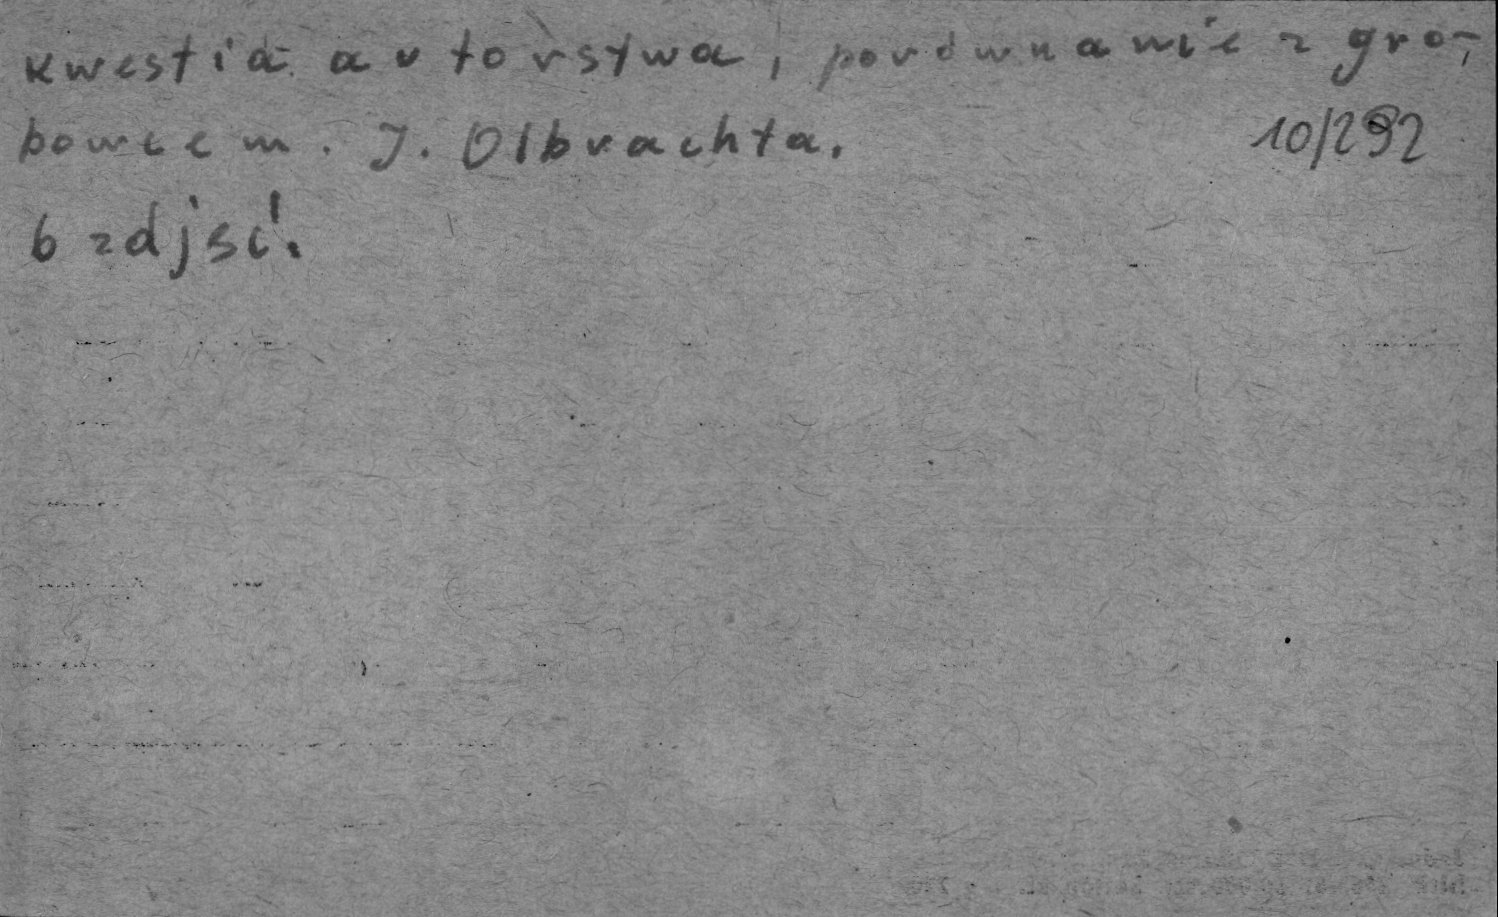 kwestia autorstwa, porównanie z gro-
bowcem. J. Olbrachta.
10/292
6 zdjęć.